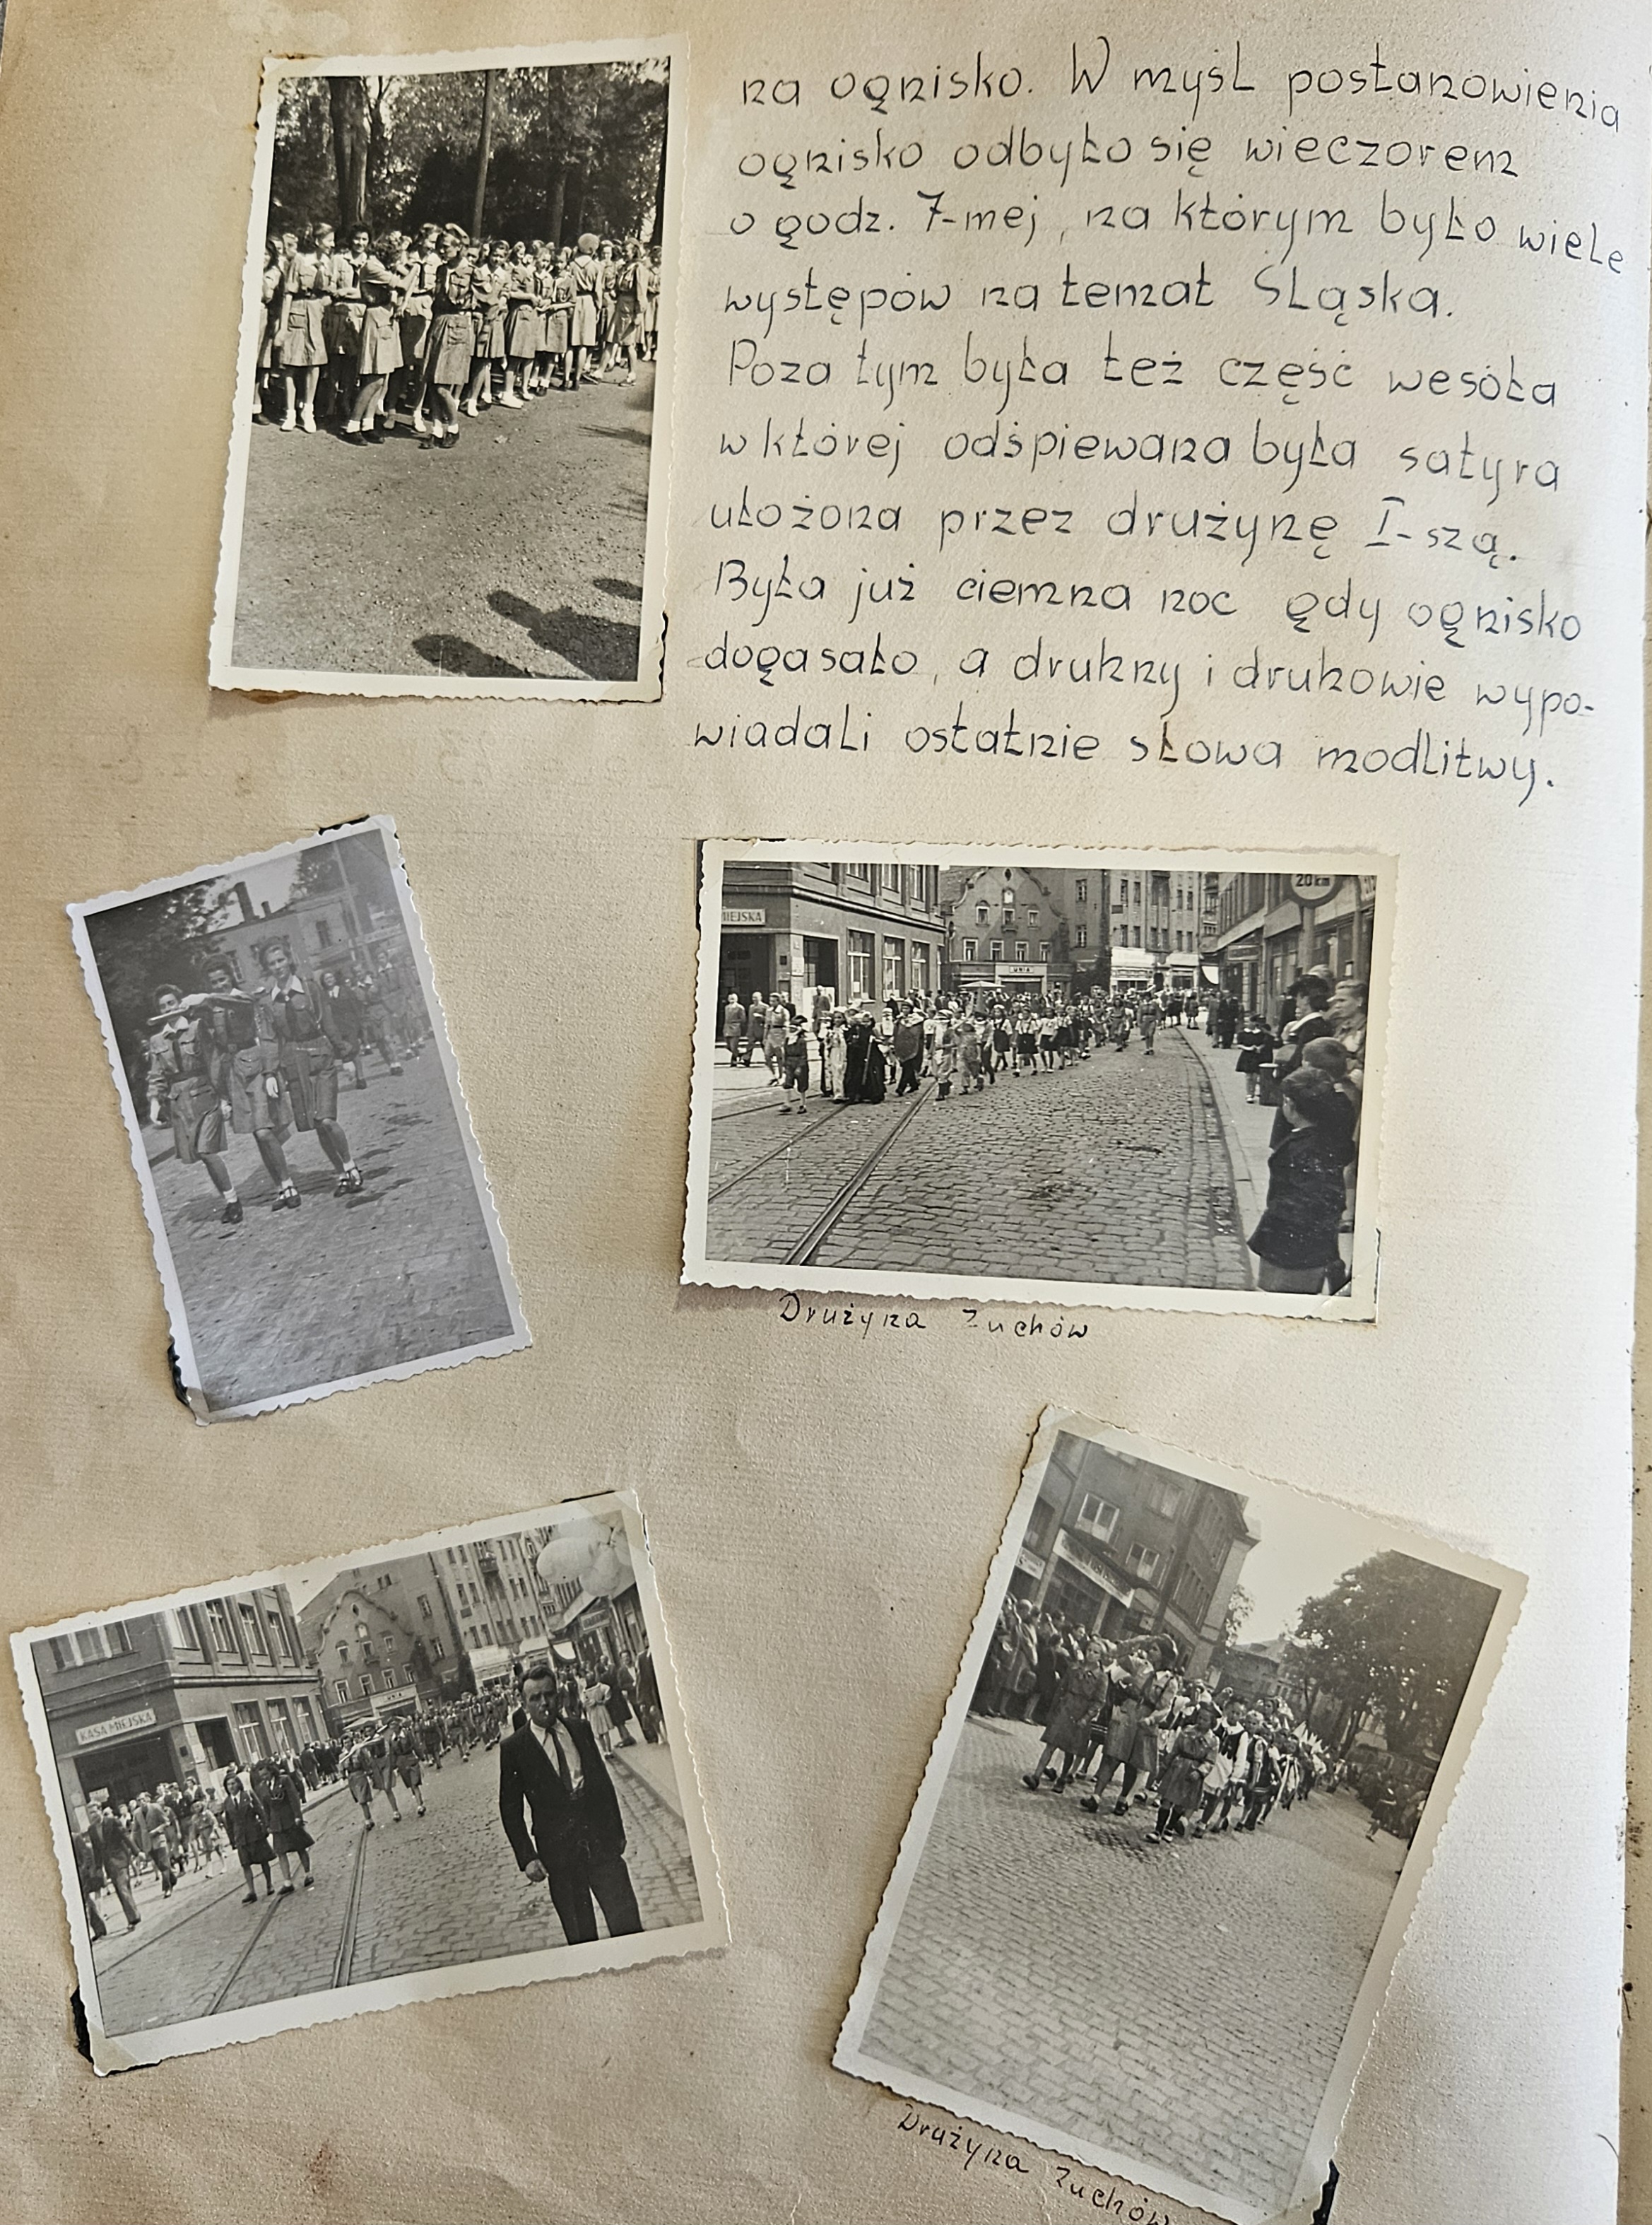 na ognisko. W myśl postanowienia
ognisko odbyło się wieczorem
o godz. 7-mej, na którym było wiele
występów na temat Śląska.
Poza tym była też część wesoła
w której odśpiewana była satyra
ułożona przez drużynę I-szą.
Była już ciemna noc gdy ognisko
dogasało, a druhny i druhowie wypo-
wiadali ostatnie słowa modlitwy.
MIEJSKA
UNIA
20 km
Drużyna Zuchów
KASA MIEJSKA
UNIA
Drużyna Zuchów